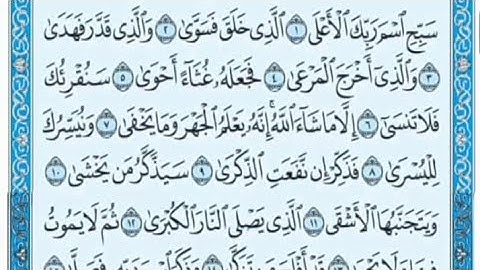 سَبِّحِ ٱسۡمَ رَبِّكَ ٱلۡأَعۡلَى ١ ٱلَّذِي خَلَقَ فَسَوَّىٰ ٢ وَٱلَّذِي قَدَّرَ فَهَدَىٰ
٣ وَٱلَّذِيٓ أَخۡرَجَ ٱلۡمَرۡعَىٰ ٤ فَجَعَلَهُۥ غُثَآءً أَحۡوَىٰ ٥ سَنُقۡرِئُكَ
فَلَا تَنسَىٰٓ ٦ إِلَّا مَا شَآءَ ٱللَّهُۚ إِنَّهُۥ يَعۡلَمُ ٱلۡجَهۡرَ وَمَا يَخۡفَىٰ ٧ وَنُيَسِّرُكَ
لِلۡيُسۡرَىٰ ٨ فَذَكِّرۡ إِن نَّفَعَتِ ٱلذِّكۡرَىٰ ٩ سَيَذَّكَّرُ مَن يَخۡشَىٰ ١٠
وَيَتَجَنَّبُهَا ٱلۡأَشۡقَى ١١ ٱلَّذِي يَصۡلَى ٱلنَّارَ ٱلۡكُبۡرَىٰ ١٢ ثُمَّ لَا يَمُوتُ